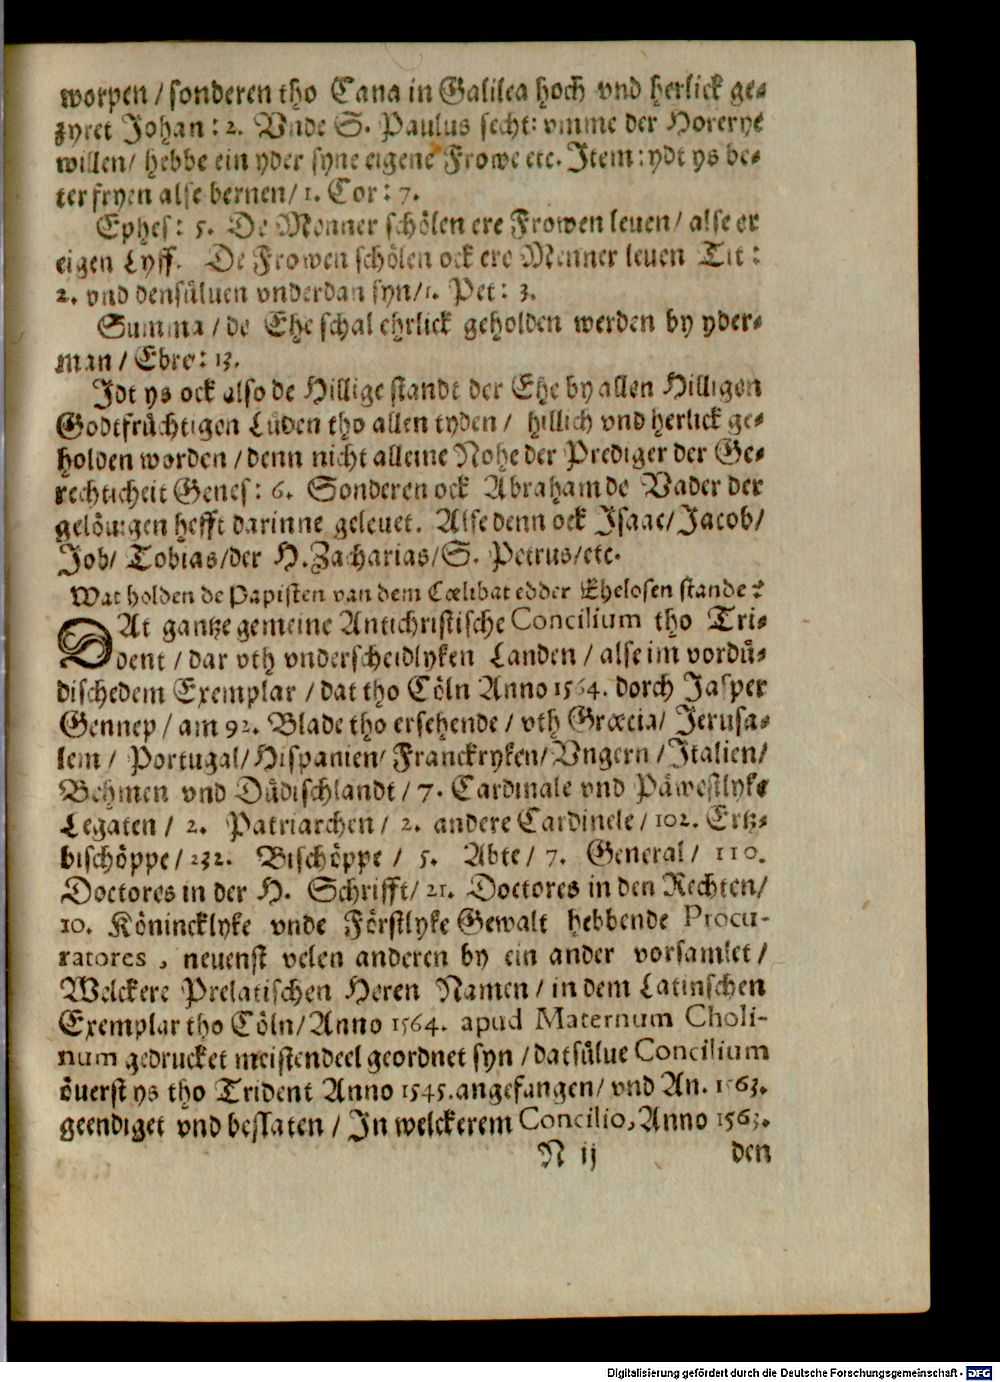 worpen / sonderen tho Cana in Galilea hoch vnd herlick ge⸗
zyret Johan: 2. Vnde S. Paulus secht: vmme der Horerye
willen/ hebbe ein yder syne eigene Frowe etc. Item: ydt ys be⸗
ter fryen alse bernen/ 1. Cor: 7.
Ephes: 5. De Menner schölen ere Frowen leuen/ alse er
eigen Lyff. De Frowen schölen ock ere Menner leuen Tit:
2. vnd densüluen vnderdan syn/ 1. Pet: 3.
Summa / de Ehe schal ehrlick geholden werden by yder⸗
man / Ebre: 13.
Idt ys ock also de Hillige standt der Ehe by allen Hilligen
Godtfrüchtigen Lüden tho allen tyden / hillich vnd herlick ge⸗
holden worden / denn nicht alleine Nohe der Prediger der Ge⸗
rechticheit Genes: 6. Sonderen ock Abraham de Vader der
gelöuigen hefft darinne geleuet. Alse denn ock Isaac/ Jacob/
Job/ Tobias/ der H. Zacharias/ S. Petrus/ etc.
Wat holden de Papisten van dem Cœlibat edder Ehelosen stande?
DAt gantze gemeine Antichristische Concilium tho Tri⸗
dent / dar vth vnderscheidlyken Landen / alse im vordü⸗
dischedem Exemplar / dat tho Cöln Anno 1564. dorch Jasper
Gennep / am 92. Blade tho ersehende / vth Græcia/ Jerusa⸗
lem / Portugal/ Hispanien/ Franckryken/ Vngern / Italien/
Behmen vnd Düdischlandt / 7. Cardinale vnd Päwestlyke
Legaten / 2. Patriarchen / 2. andere Cardinele / 102. Ertz⸗
bischöppe / 232. Bischöppe / 5. Abte / 7. General / 110.
Doctores in der H. Schrifft/ 21. Doctores in den Rechten/
10. Könincklyke vnde Förstlyke Gewalt hebbende Procu-
ratores, neuenst velen anderen by ein ander vorsamlet /
Welckere Prelatischen Heren Namen / in dem Latinschen
Exemplar tho Cöln/ Anno 1564. apud Maternum Choli-
num gedrucket meistendeel geordnet syn / datsülue Concilium
öuerst ys tho Trident Anno 1545. angefangen/ vnd An. 1563.
geendiget vnd beslaten / In welckerem Concilio, Anno 1563.
N ij den
Digitalisierung gefördert durch die Deutsche Forschungsgemeinschaft - DFG